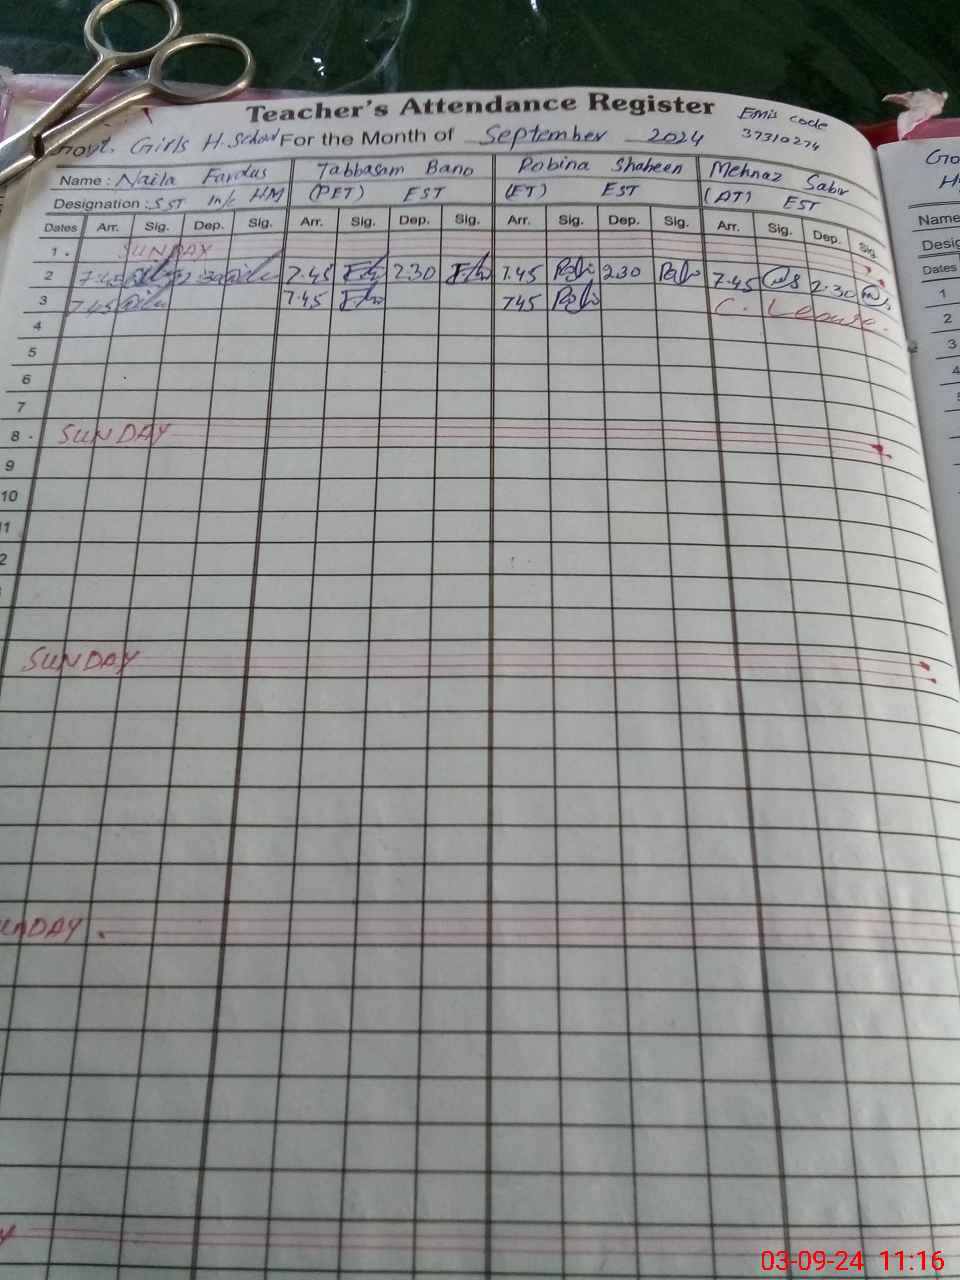 Teacher's Attendance Register
Emis code
37310274
Govt. Girls H. School For the Month of September 2024
Name : Naila Fardus Tabbasam Bano Robina Shaheen Mehnaz Sabir
Designation : SST In/c HM (PET) EST (ET) EST (AT) EST
Dates Arr. Sig. Dep. Sig. Arr. Sig. Dep. Sig. Arr. Sig. Dep. Sig. Arr. Sig. Dep. Sig.
1 . SUNDAY
2 7.45 2.30 7.45 2.30 7.45 2.30 7.45 2.30
3 7.45 7.45 745 C. Leave.
4
5
6
7
8 . SUNDAY
9
10
11
2
SUNDAY
UNDAY .
Name
Desig
Dates
1
2
3
4
03-09-24 11:16